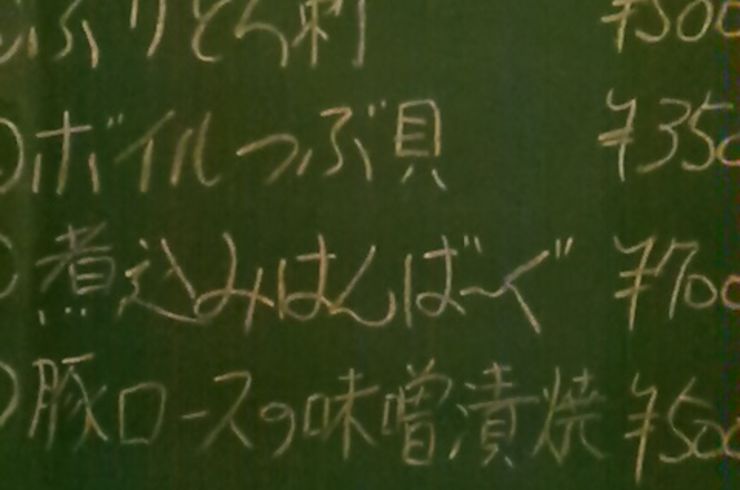 ぶりとろ刺 ¥500
ボイルつぶ貝 ¥350
煮込みはんばーぐ ¥700
豚ロースの味噌漬焼 ¥500